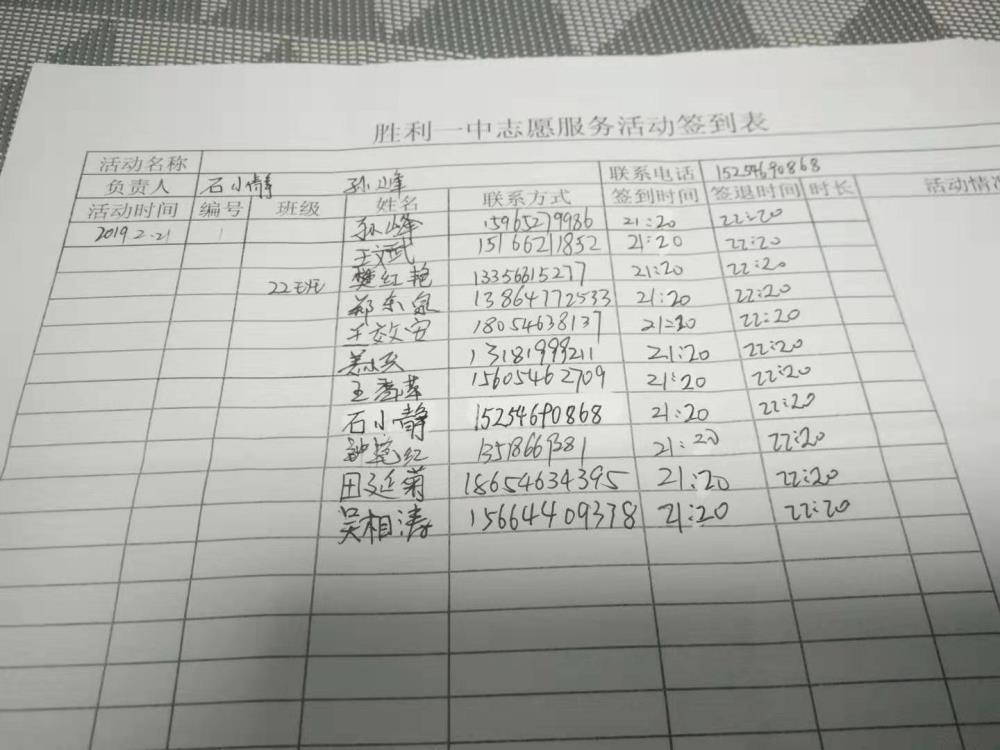 胜利一中志愿服务活动签到表
活动名称 联系电话 15254690868
负责人 石小静 孙峰 签到时间 签退时间 时长 活动情况
活动时间 编号 班级 姓名 联系方式
2019 2.21 1 孙峰 15965279986 21:20 22:20
王 15166211852 21:20 22:20
22 樊红艳 13356615277 21:20 22:20
郑东泉 13864772533 21:20 22:20
王效安 18054638137 21:20 22:20
13181999211 21:20 22:20
王秀萍 15605462709 21:20 22:20
石小静 15254690868 21:20 22:20
艳红 21:20 22:20
田延菊 18654634395 21:20 22:20
吴相涛 15664409378 21:20 22:20